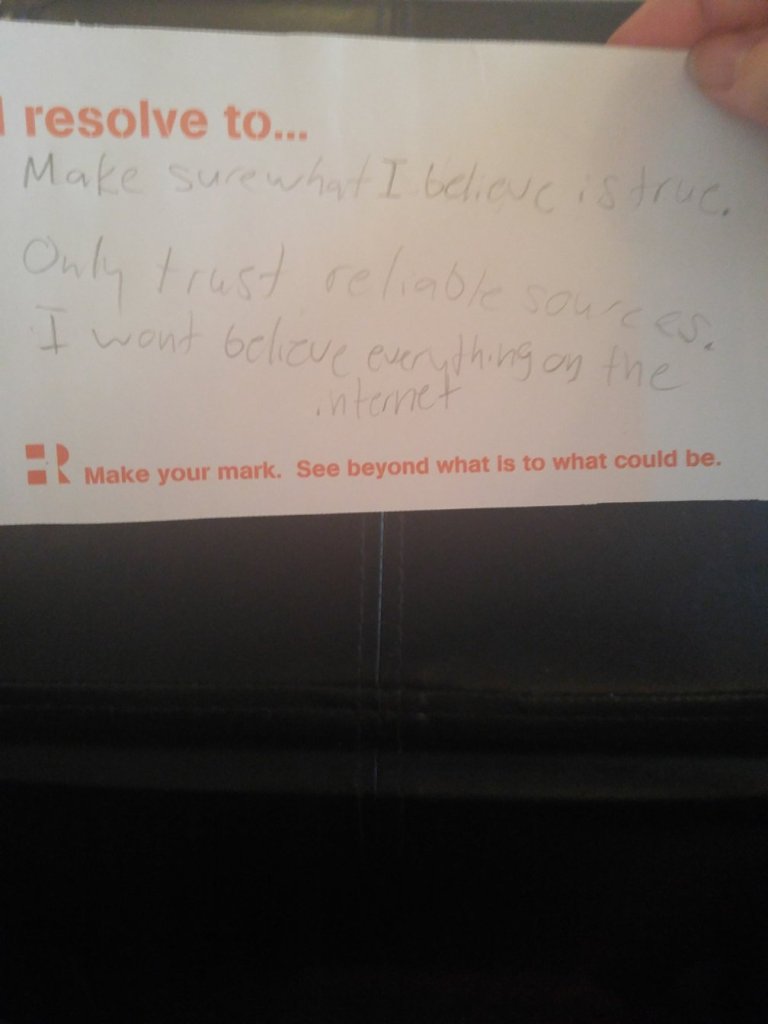 I resolve to...
Make sure what I believe is true.
Only trust reliable sources.
I wont believe everything on the
internet
R Make your mark. See beyond what is to what could be.